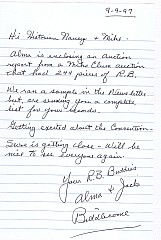 9-9-97
Hi Historian Nancy + Mike -
Alma is enclosing an auction
report from a Niche Elura auction
that had 244 pieces of R.B.
We ran a sample in the Newsletter
but, are sending you a complete
list for your records.
Getting excited about the Convention.
Sure is getting close - Will be
nice to see everyone again.
Your R.B. Buddies
Alma & Jack
Biddlecome